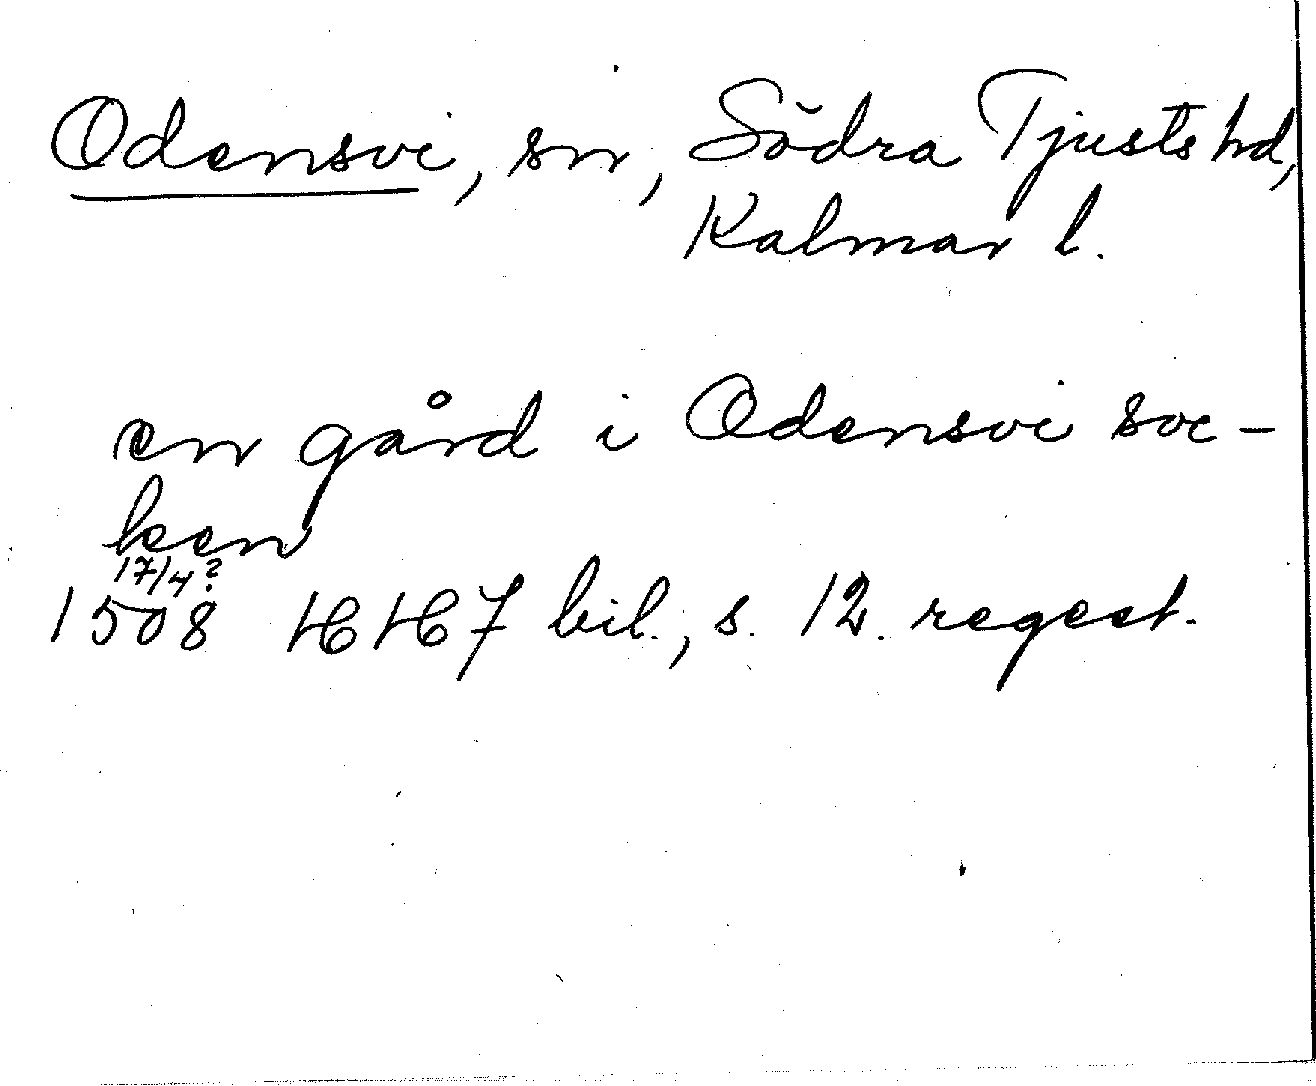 Odensvi, sn, Södra Tjusts hd,
Kalmar l.
en gård i Odensvi soc-
ken
17/4?
1508 HH 7 bil., s. 12. regest.